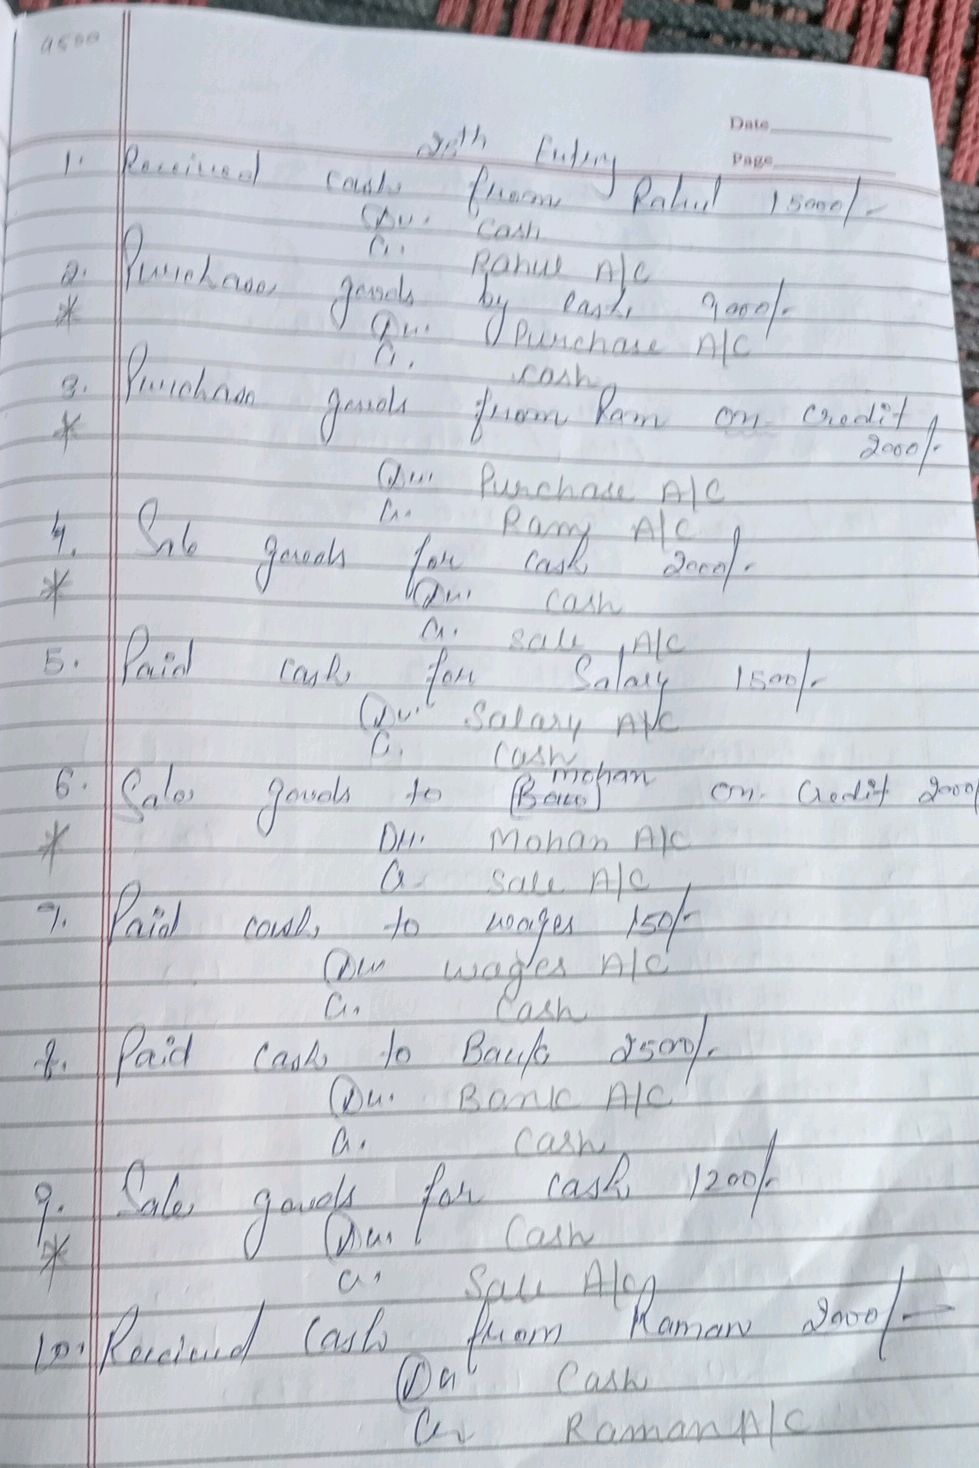 9500
Date
Page
25th Entry
1. Received cash from Rahul 15000/-
Dr. Cash
Cr. Rahul A/C
2. Purchase goods by cash 9000/-
* Dr. Purchase A/C
Cr. Cash
3. Purchase goods from Ram on credit
* 2000/-
Dr. Purchase A/C
Cr. Ram A/C
4. Sale goods for cash 2000/-
* Dr. Cash
Cr. Sale A/C
5. Paid cash for Salary 1500/-
Dr. Salary A/C
Cr. Cash
mohan
6. Sale goods to (Bau) on Credit 2000/
* Dr. Mohan A/C
Cr. Sale A/C
7. Paid cash to wages 150/-
Dr. Wages A/C
Cr. Cash
8. Paid cash to Bank 2500/-
Dr. Bank A/C
Cr. Cash
9. Sale goods for cash 1200/-
* Dr. Cash
Cr. Sale A/C
10. Received Cash from Raman 2000/-
Dr. Cash
Cr. Raman A/C